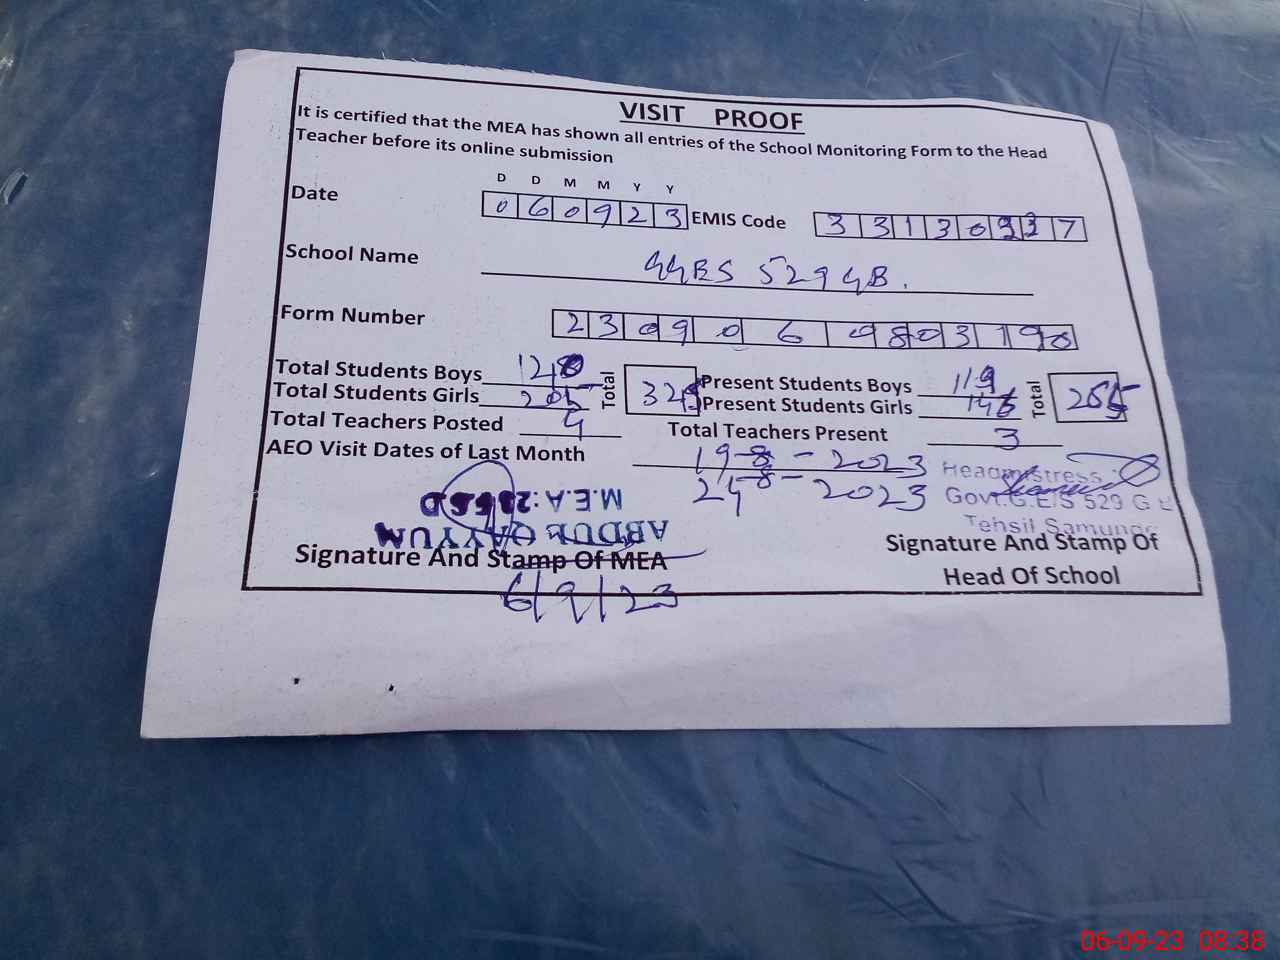 VISIT PROOF
It is certified that the MEA has shown all entries of the School Monitoring Form to the Head
Teacher before its online submission
D D M M Y Y
Date 0 6 0 9 2 3 EMIS Code 3 3 1 3 0 7
School Name GGES 529 GB.
Form Number 2 3 0 9 0 6 0 8 0 3 1 9 0
Total Students Boys 120 Total Present Students Boys 119 Total
Total Students Girls 205 325 Present Students Girls 146 265
Total Teachers Posted 4 Total Teachers Present 3
AEO Visit Dates of Last Month 19-8-2023
24-8-2023
Headmistress
Govt.G.E/S 529 G B
Tehsil
M.E.A:
ABDUL QAYYUM
Signature And Stamp Of MEA
Signature And Stamp Of
Head Of School
6/9/23
06-09-23 08:38